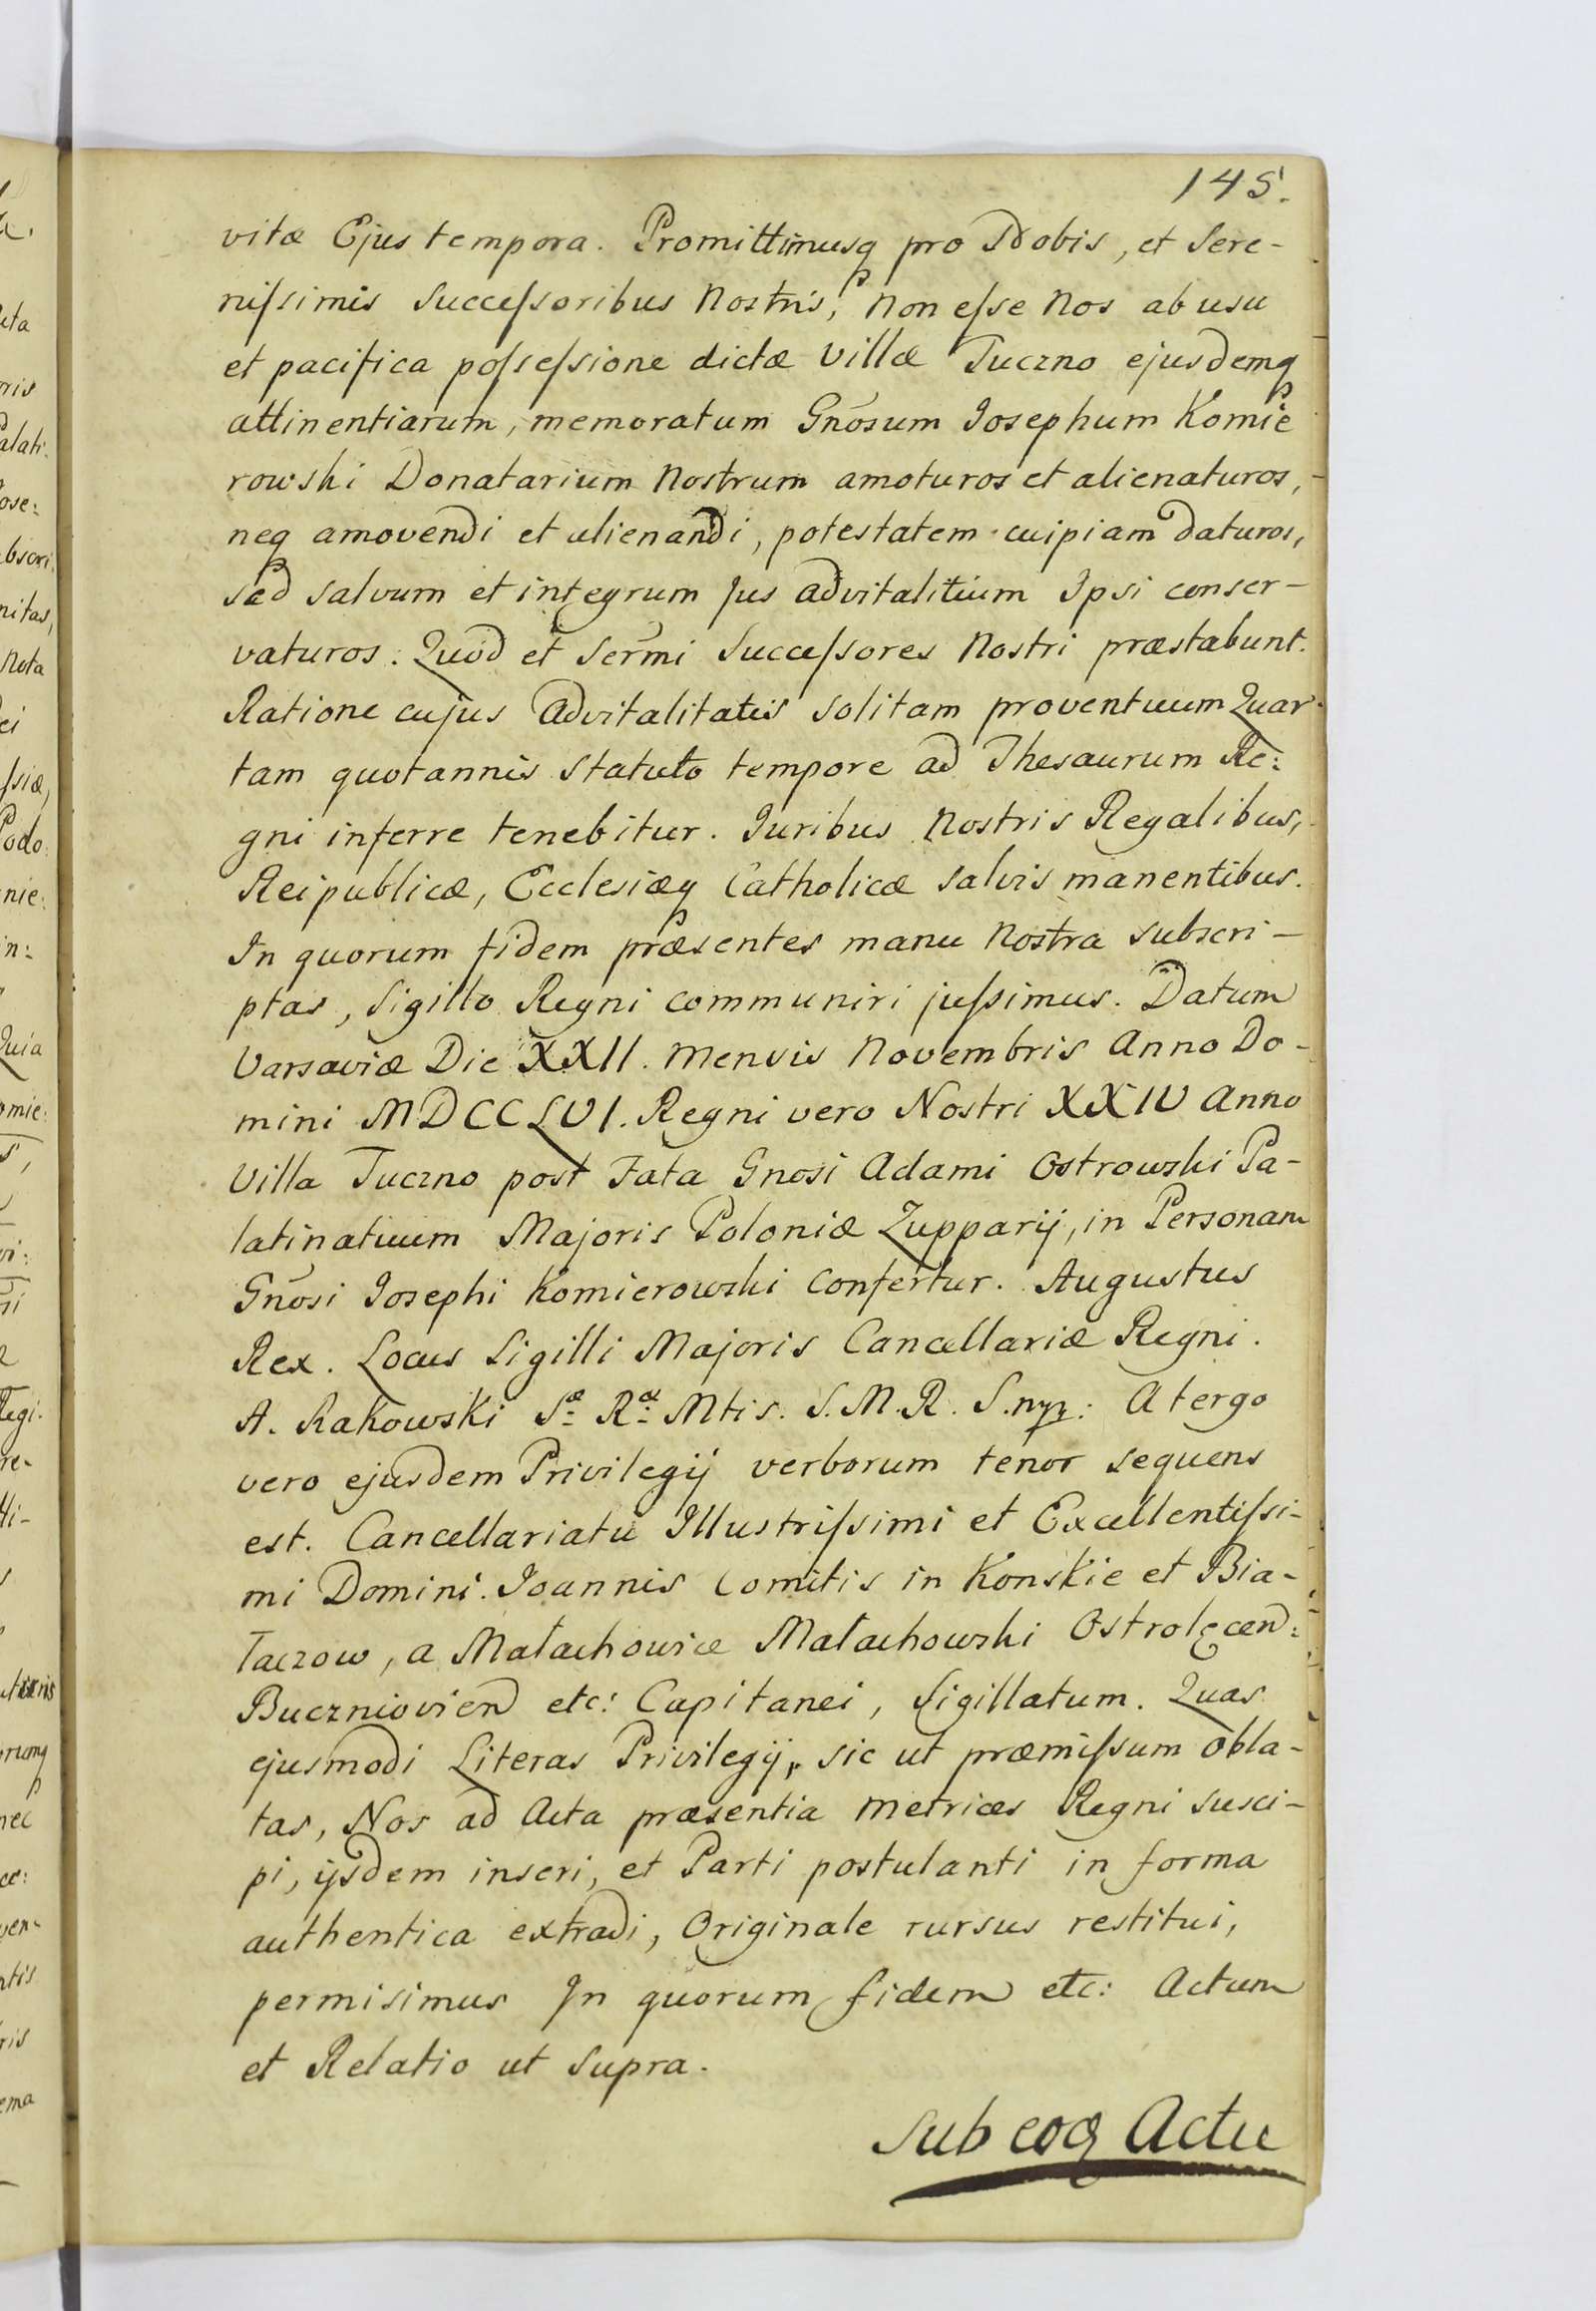 145.
vitæ Ejus tempora. Promittimusq pro Nobis, et Sere-
nissimis Successoribus Nostris, non esse Nos ab usu
et pacifica possessione dictæ Villæ Tuczno ejusdemq
attinentiarum, memoratum Gnosum Josephum Komie
rowski Donatarium Nostrum amoturos et alienaturos,
neq amovendi et alienandi, potestatem cuipiam daturos,
sed salvum et integrum Jus advitalitium Ipsi conser-
vaturos. Quod et Sermi Successores Nostri præstabunt.
Ratione cujus Advitalitatis solitam proventuum Quar-
tam quotannis statuto tempore ad Thesaurum Re:
gni inferre tenebitur. Juribus Nostris Regalibus,
Reipublicæ, Ecclesiæq Catholicæ salvis manentibus.
In quorum fidem præsentes manu Nostra subscri-
ptas, Sigillo Regni communiri jussimus. Datum
Varsaviæ Die XXII. Mensis Novembris Anno Do-
mini MDCCLVI. Regni vero Nostri XXIV Anno
Villa Tuczno post Fata Gnosi Adami Ostrowski Pa-
latinatuum Majoris Poloniæ Zupparij, in Personam
Gnosi Josephi Komierowski Confertur. Augustus
Rex. Locus Sigilli Majoris Cancellariæ Regni.
A. Rakowski Sæ Ræ Mtis. S.M.R. S. A tergo
vero ejusdem Privilegij verborum tenor sequens
est. Cancellariatu Illustrissimi et Excellentissi-
mi Domini. Joannis Comitis in Konskie et Bia-
łaczow, a Małachowice Małachowski Ostrolęcen:
Buczniovien etc: Capitanei, Sigillatum. Quas
ejusmodi Literas Privilegij, sic ut præmissum obla-
tas, Nos ad Acta præsentia Metrices Regni susci-
pi, ijsdem inseri, et Parti postulanti in forma
authentica extradi, Originale rursus restitui,
permisimus In quorum fidem etc: Actum
et Relatio ut supra.
Sub eoq Actu